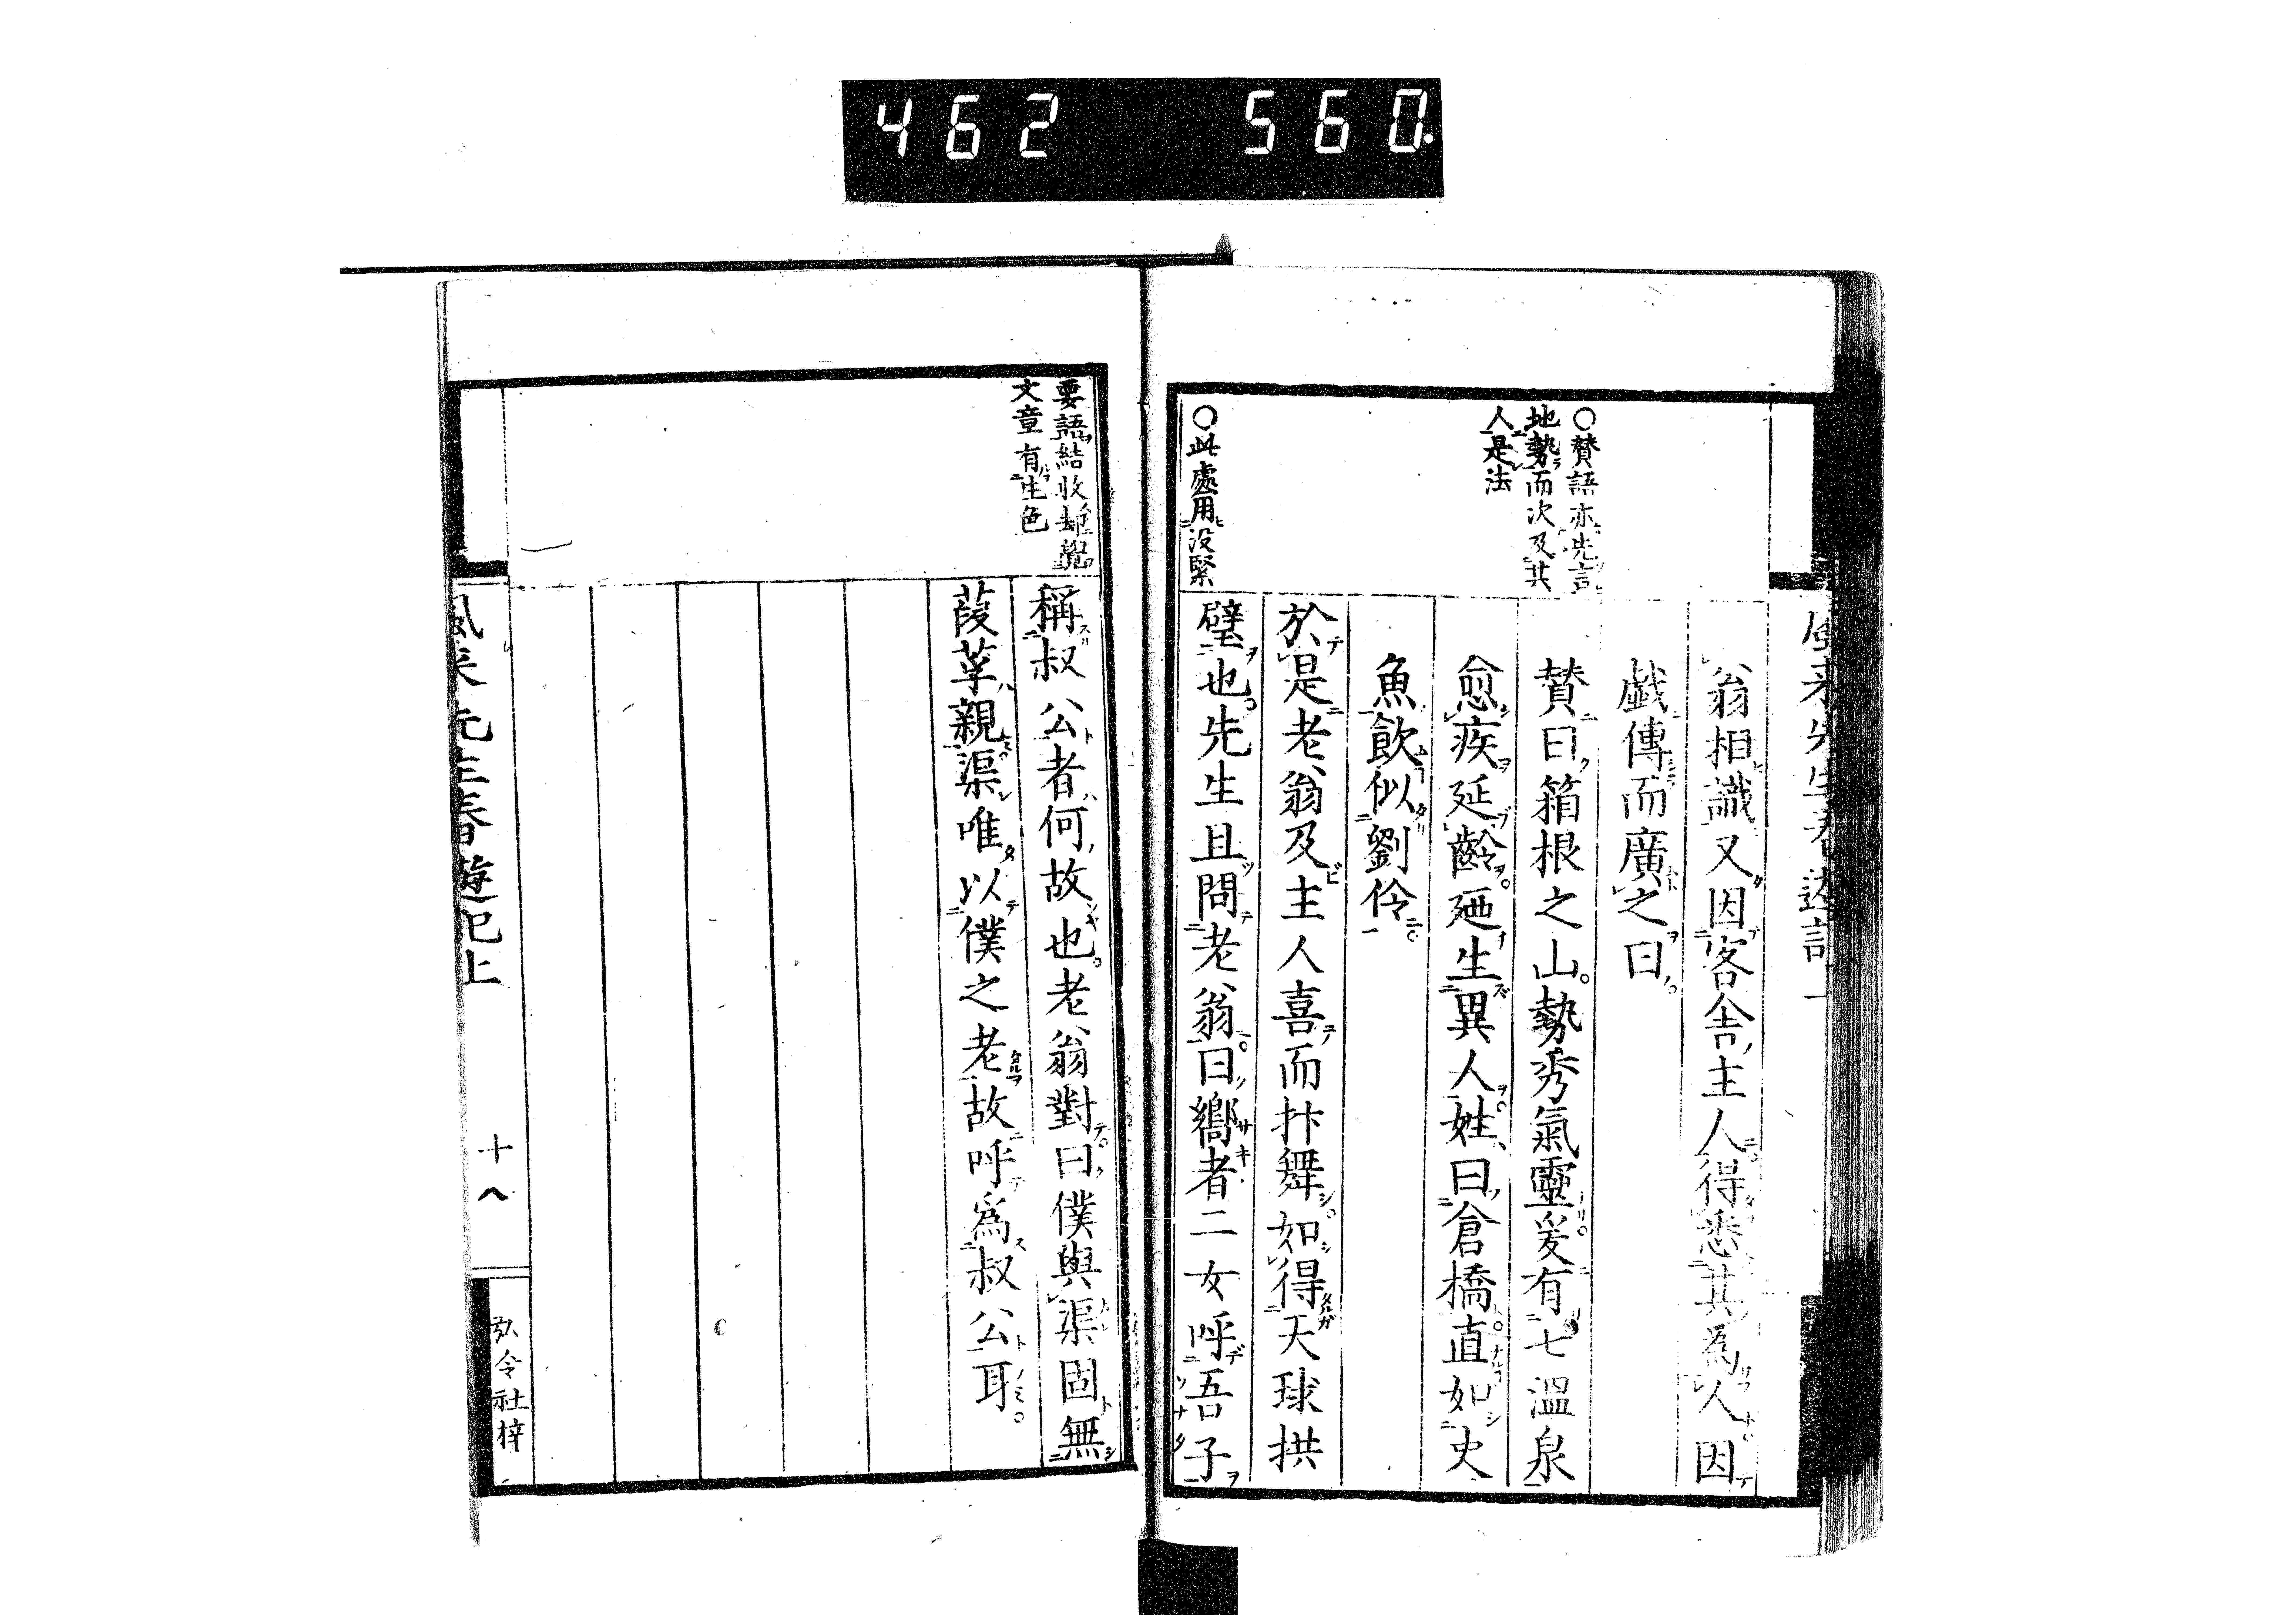 462 560.
○賛語亦先言
地勢而次及其
人是法
○此處用没緊
翁相識又因客舎主人得悉其為人因
戯傳而廣之曰
賛曰箱根之山。勢秀氣靈爰有七温泉
愈疾延齡廼生異人姓曰倉橋直如史
魚飲似劉伶
於是老翁及主人喜而抃舞如得天球拱
璧也先生且問老翁曰嚮者二女呼吾子
要語結收却覺
文章有生色
稱叔公者何故也老翁對曰僕與渠固無
葭莩親渠唯以僕之老故呼為叔公耳
風來先生春遊記上
十八
弘令社梓